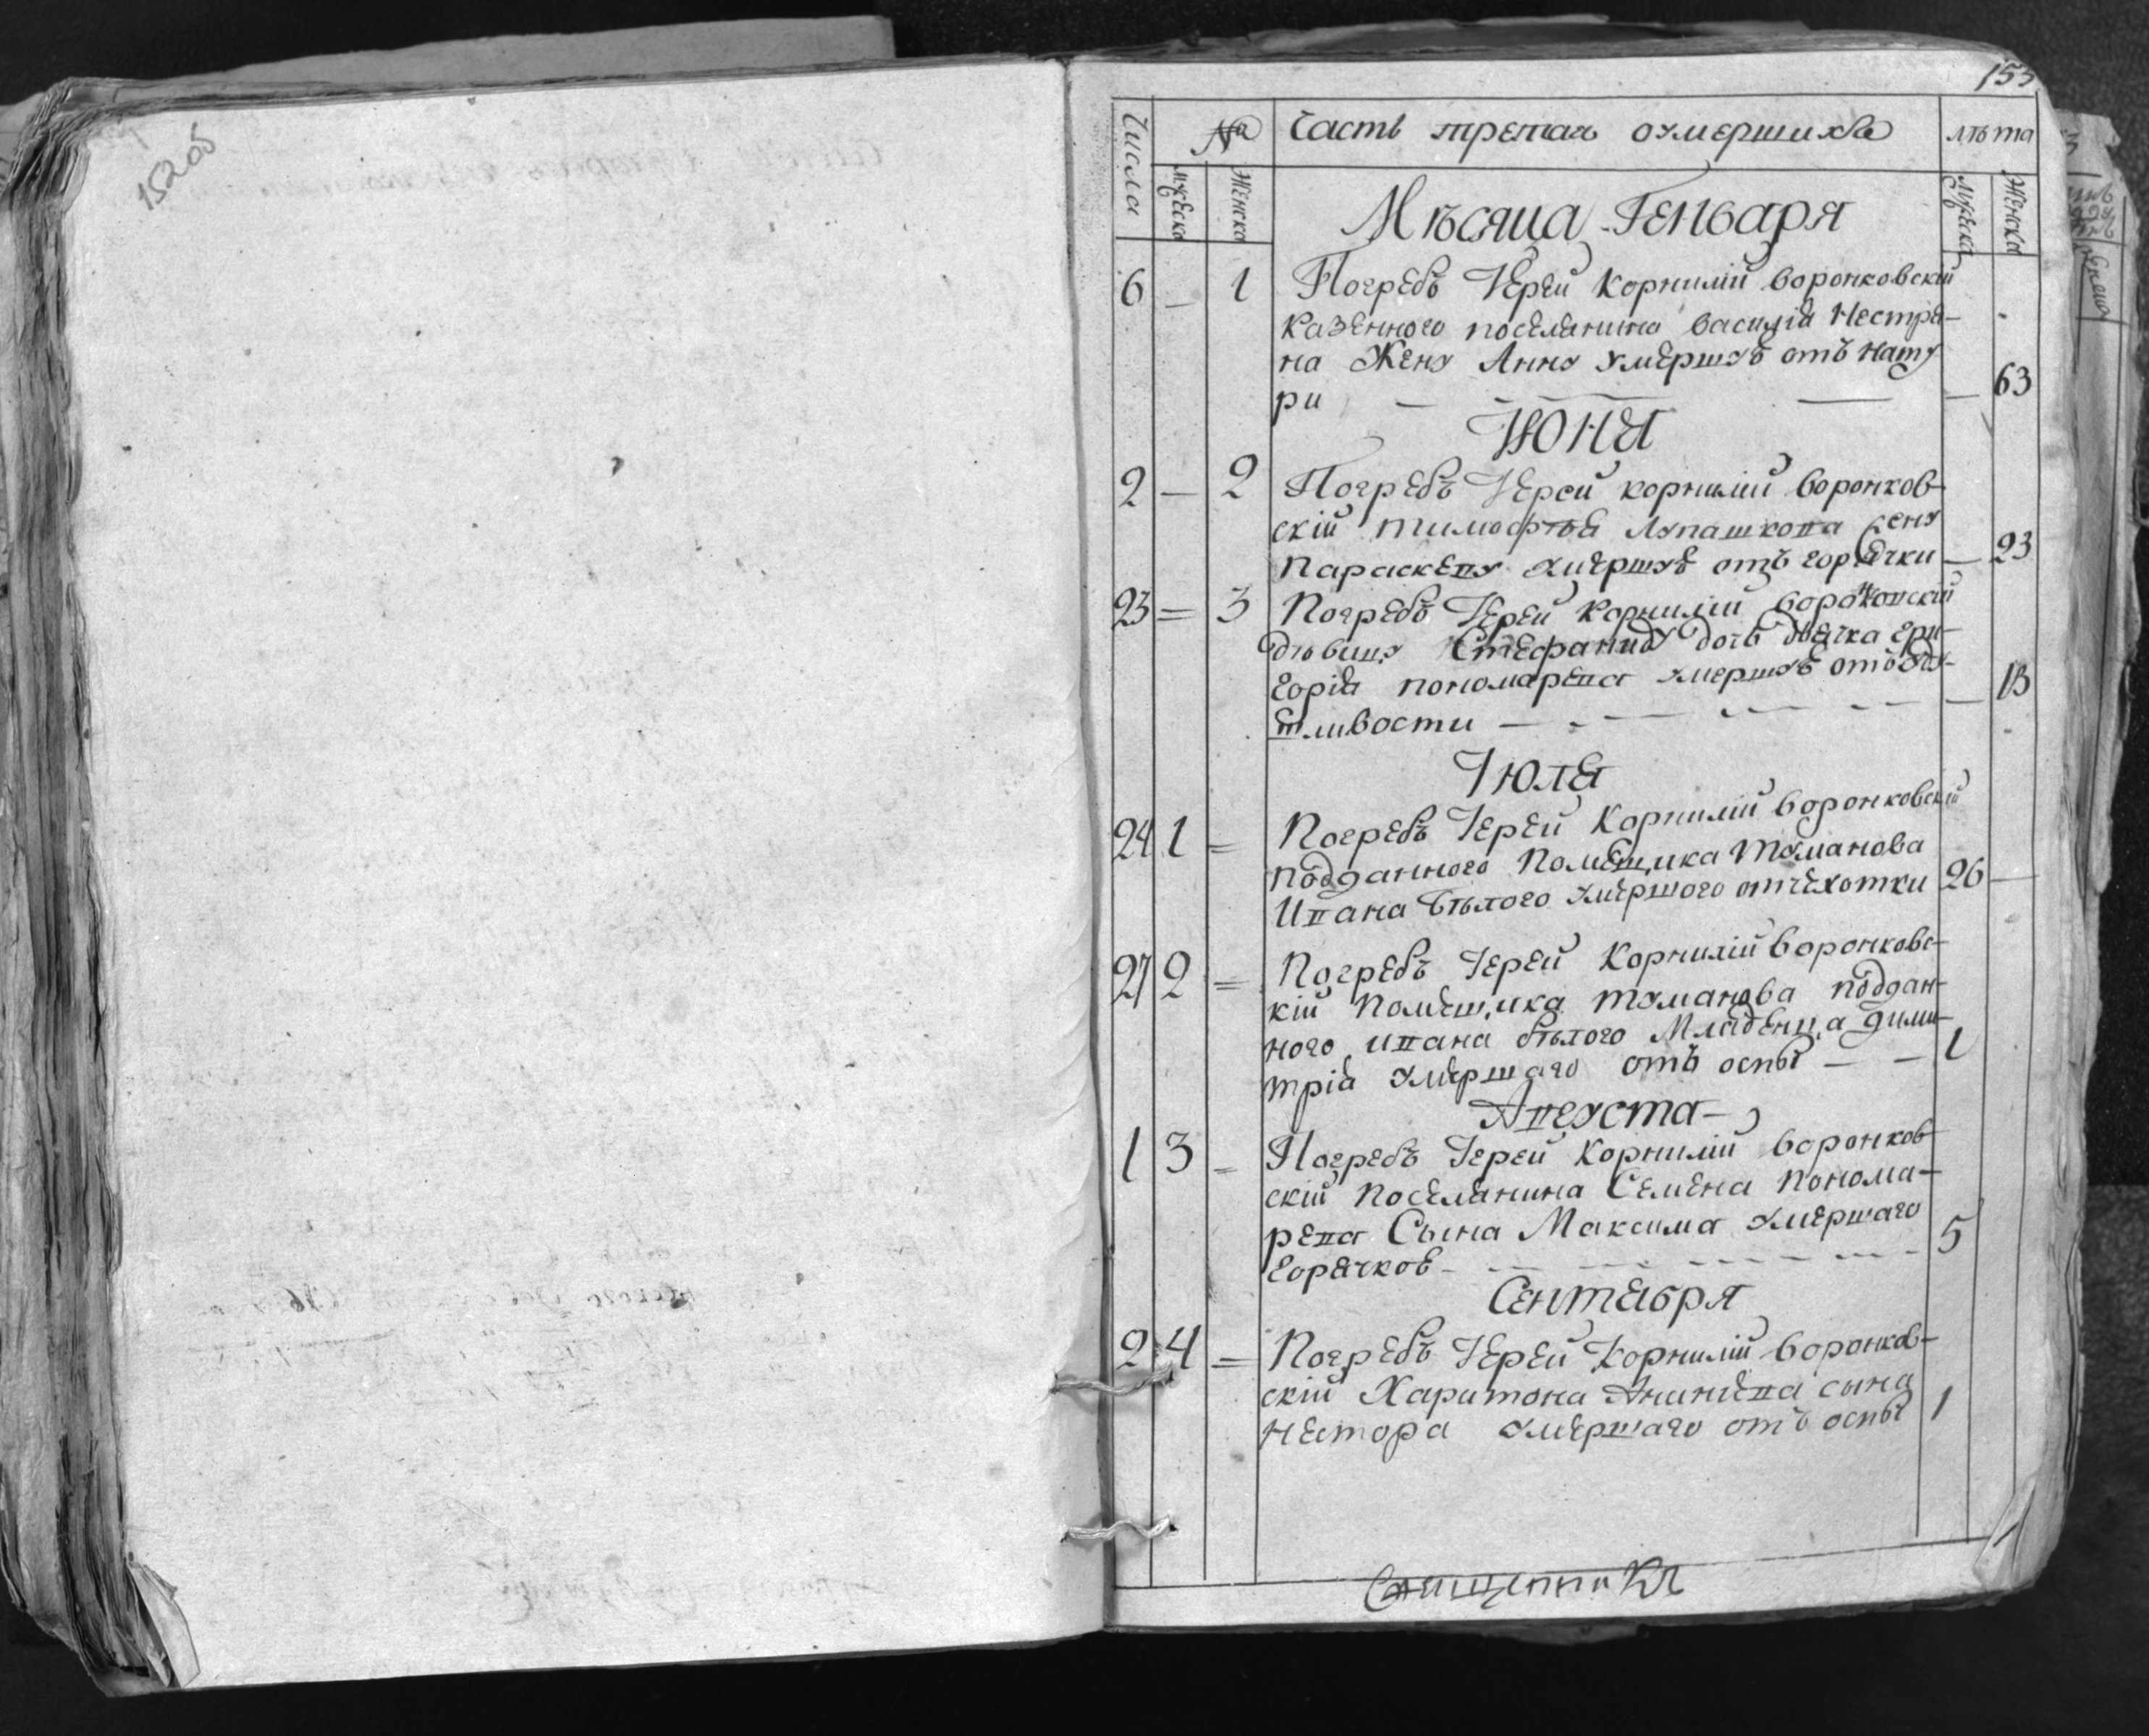 152об
153
Числа № Часть третая оумершихъ лѣта
мужеска женска мужеска женска
Мѣсяца Генваря
6 — 1 Погребъ Іерей Корнилій Воронковскій
казенного поселянина василія Нестре-
на Жену Анну умершую отъ нату
ри — — — — 63
Июня
2 — 2 Погребъ Іерей корнилій воронков-
скій тимофѣя Лупашкова жену
Параскеву умершую отъ горячки — 23
23 = 3 Погребъ Іерей Корнилій воронковскій
дѣвицу Стефанию дочь дьячка гри-
горія пономарева умершую отъ
шливости — — — — 13
Іюля
24 1 = Погребъ Іерей Корнилій воронковскій
подданного Помещика Туманова
Ивана Бѣлого умершого отчехотки 26 —
27 2 = Погребъ Іерей Корнилій воронковс-
кій помещика туманова поддан-
ного ивана бѣлого Младенца дими-
трія умершаго отъ оспы — — 1
Августа
1 3 = Погребъ Іерей Корнилій воронков-
скій поселянина Семена понома-
рева Сына Максима умершаго
горячкою — — — 5
Сентября
2 4 = Погребъ Іерей Корнилій воронков-
скій Харитона Ананіева сына
нестора умершаго отъ оспы 1
Священникъ